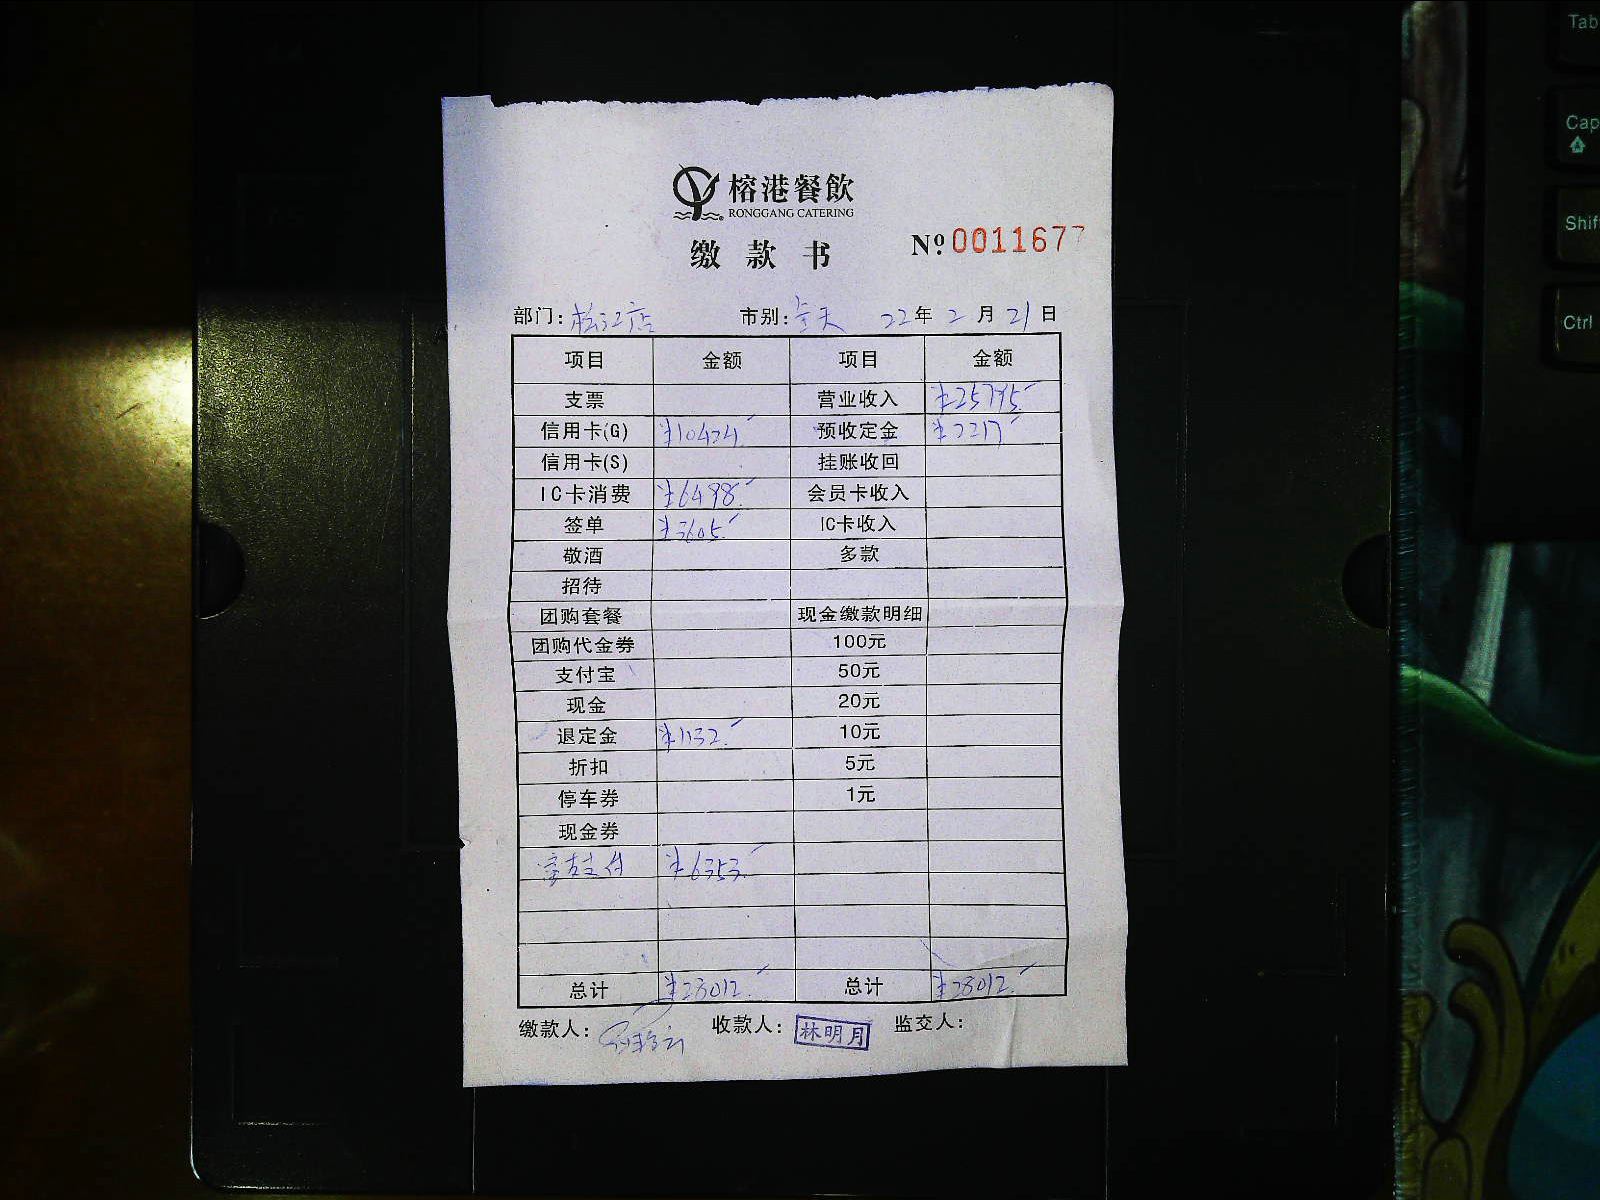 榕港餐飲
RONGGANG CATERING
缴款书
Nº 0011677
部门: 松江店 市别: 全天 22年 2月 21日
项目 金额 项目 金额
支票 营业收入 ¥25795
信用卡(G) ¥10424 预收定金 ¥2217
信用卡(S) 挂账收回
IC卡消费 ¥6498 会员卡收入
签单 ¥3605 IC卡收入
敬酒 多款
招待
团购套餐 现金缴款明细
团购代金券 100元
支付宝 50元
现金 20元
退定金 ¥1132 10元
折扣 5元
停车券 1元
现金券
支付 ¥6353
总计 ¥28012 总计 ¥28012
缴款人: 收款人: 林明月 监交人:
Tab
Cap
Shif
Ctrl